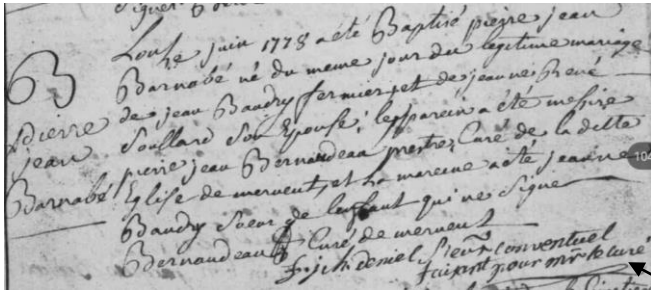 B
pierre
jean
Barnabé
L'onze juin 1778 a eté Baptisé pierre jean
Barnabé né du meme jour du legitime mariage
de jean Baudry fermier, et de jeanne René
Soullard Son Epouse; le parein a été messire
pierre jean Bernaudeau, prestre, Curé de la ditte
Eglise de mervent, et La mareine a été jeanne
Baudry Soeur de lenfant qui ne Signe
Bernaudeau Curé de mervent
prieur conventuel
faisant pour mr le curé
104